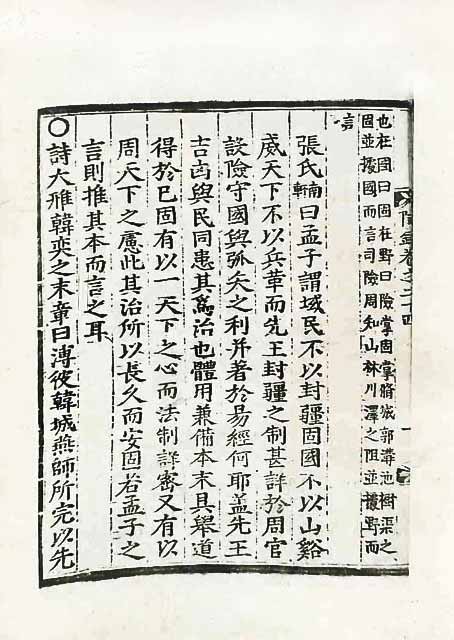 卷之二十四
也在國曰固在野曰險掌固掌脩城郭溝池樹渠之
固並據國而言司險周知山林川澤之阻並據野而
言
張氏南軒曰孟子謂域民不以封疆固國不以山谿
威天下不以兵革而先王封疆之制甚詳於周官
設險守國與弧矢之利并著於易經何耶盖先王
吉凶與民同患其爲治也體用兼備本末具舉道
得於已固有以一天下之心而法制詳審又有以
周天下之慮此其治所以長久而安固若孟子之
言則推其本而言之耳
○詩大雅韓奕之末章曰溥彼韓城燕師所完以先